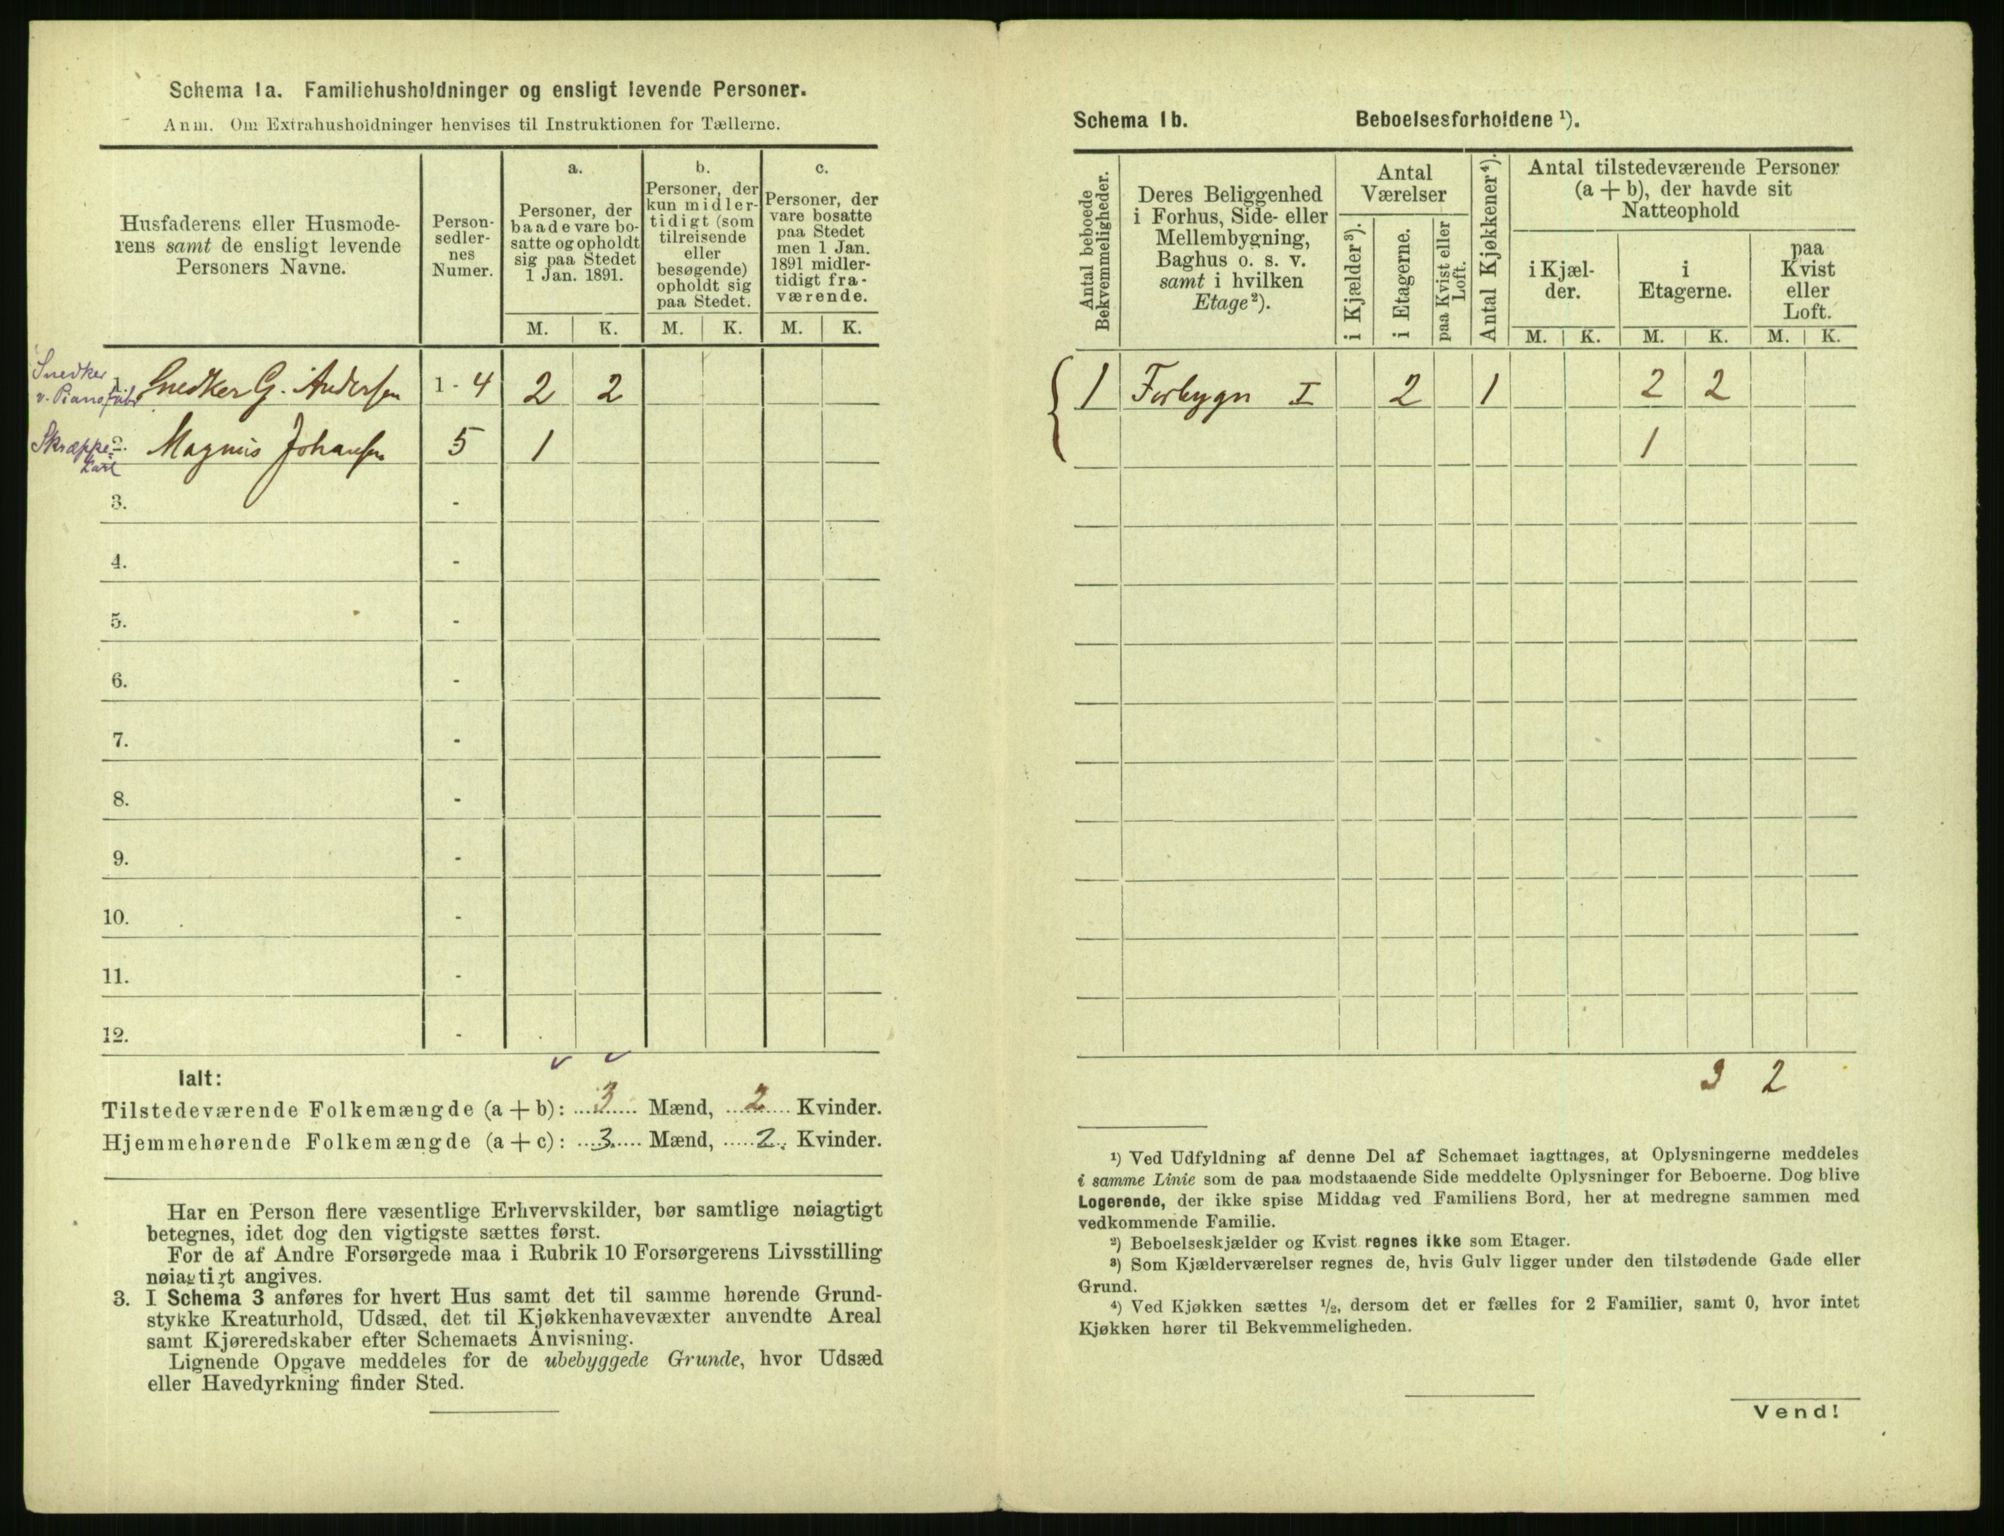 Schema 1a. Familiehusholdninger og ensligt levende Personer.
Anm. Om Extrahusholdninger henvises til Instruktionen for Tællerne.
Husfaderens eller Husmoderens samt de ensligt levende Personers Navne.
Personsedlernes Numer.
a.
Personer, der baade vare bosatte og opholdt sig paa Stedet 1 Jan. 1891.
b.
Personer, der kun midlertidigt (som tilreisende eller besøgende) opholdt sig paa Stedet.
c.
Personer, der vare bosatte paa Stedet men 1 Jan. 1891 midlertidigt fraværende.
M. K. M. K. M. K.
Snedker
v. Pianofabr. Snedker G. Andersen 1 - 4 2 2
Skræppe-
karl 2. Magnus Johansen 5 1
3. -
4. -
5. -
6. -
7. -
8. -
9. -
10. -
11. -
12. -
Ialt:
Tilstedeværende Folkemængde (a + b): 3 Mænd, 2 Kvinder.
Hjemmehørende Folkemængde (a + c): 3 Mænd, 2 Kvinder.
Har en Person flere væsentlige Erhvervskilder, bør samtlige nøiagtigt
betegnes, idet dog den vigtigste sættes først.
For de af Andre Forsørgede maa i Rubrik 10 Forsørgerens Livsstilling
nøiagtigt angives.
3. I Schema 3 anføres for hvert Hus samt det til samme hørende Grund-
stykke Kreaturhold, Udsæd, det til Kjøkkenhavevæxter anvendte Areal
samt Kjøreredskaber efter Schemaets Anvisning.
Lignende Opgave meddeles for de ubebyggede Grunde, hvor Udsæd
eller Havedyrkning finder Sted.
Schema 1b. Beboelsesforholdene ¹).
Antal beboede Bekvemmeligheder.
Deres Beliggenhed i Forhus, Side- eller Mellembygning, Baghus o. s. v. samt i hvilken Etage²).
Antal Værelser
i Kjælder³).
i Etagerne.
paa Kvist eller Loft.
Antal Kjøkkener⁴).
Antal tilstedeværende Personer (a + b), der havde sit Natteophold
i Kjælder.
i Etagerne.
paa Kvist eller Loft.
M. K. M. K. M. K.
1 Forbygn I 2 1 2 2
1
3 2
¹) Ved Udfyldning af denne Del af Schemaet iagttages, at Oplysningerne meddeles
i samme Linie som de paa modstaaende Side meddelte Oplysninger for Beboerne. Dog blive
Logerende, der ikke spise Middag ved Familiens Bord, her at medregne sammen med
vedkommende Familie.
²) Beboelseskjælder og Kvist regnes ikke som Etager.
³) Som Kjælderværelser regnes de, hvis Gulv ligger under den tilstødende Gade eller
Grund.
⁴) Ved Kjøkken sættes ¹/₂, dersom det er fælles for 2 Familier, samt 0, hvor intet
Kjøkken hører til Bekvemmeligheden.
Vend!